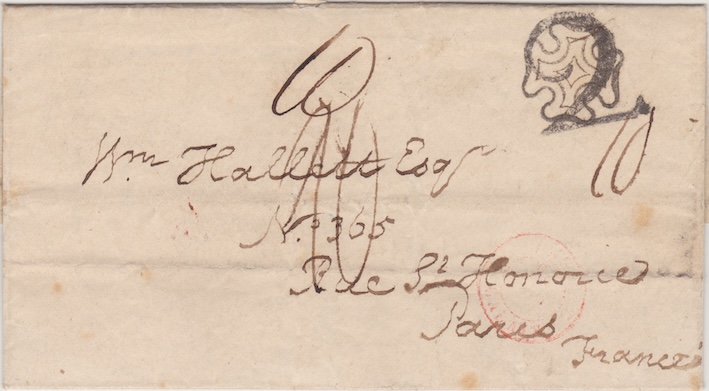 10
Wm Hallett Esqr
No. 365
Rue St Honoree
Paris
France